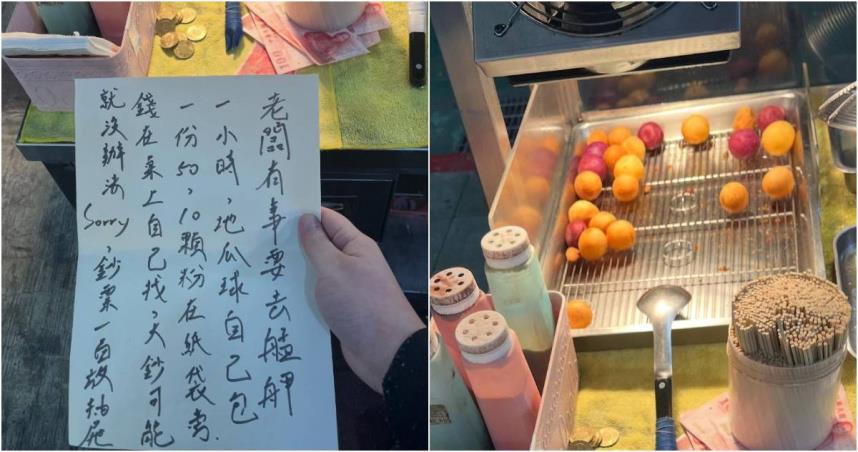 老闆有事要去艋舺
一小時，地瓜球自己包
一份50，10顆粉在紙袋旁.
錢在桌上自己找，大鈔可能
就沒辦法 Sorry，鈔票一百放抽屜
100